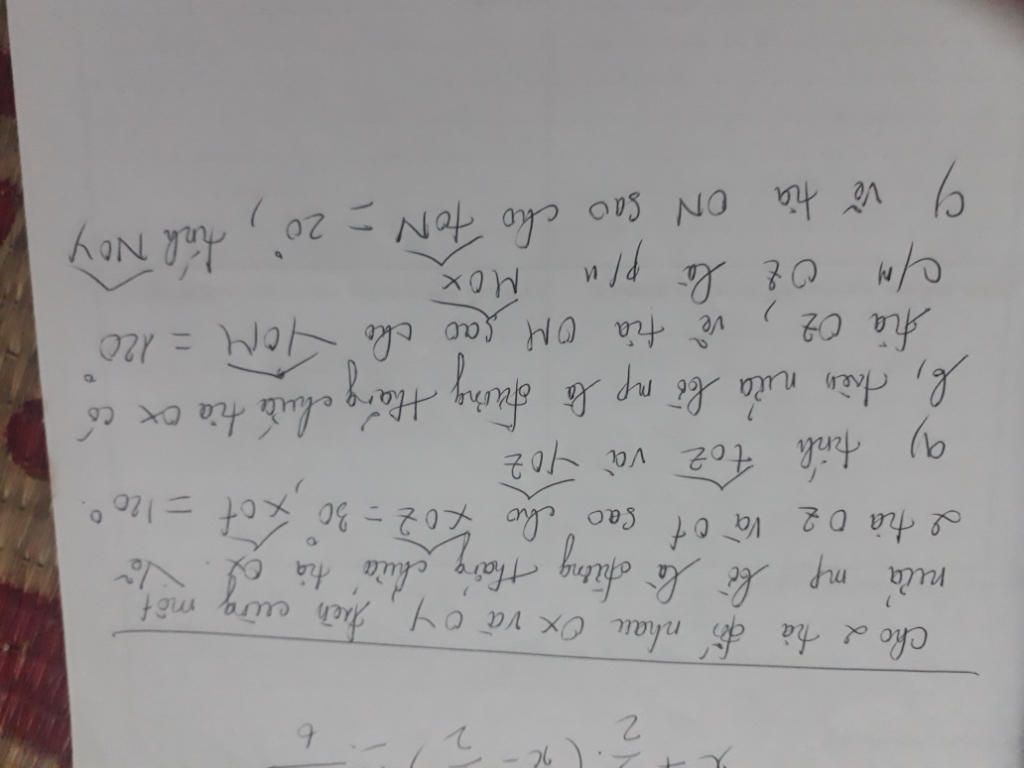 x + 2/2 . (x - 2/2) = 6
Cho 2 tia đối nhau Ox và Oy, trên cùng một
nửa mp bờ là đường thẳng chứa tia Ox. Vẽ
2 tia Oz và Ot sao cho xOz = 30°, xOt = 120°.
a) tính tOz và yOz
b, trên nửa bờ mp là đường thẳng chứa tia Ox có
tia Oz, vẽ tia OM sao cho yOM = 120°
C/M Oz là p/n MOx
c) vẽ tia ON sao cho tON = 20°, tính NOy